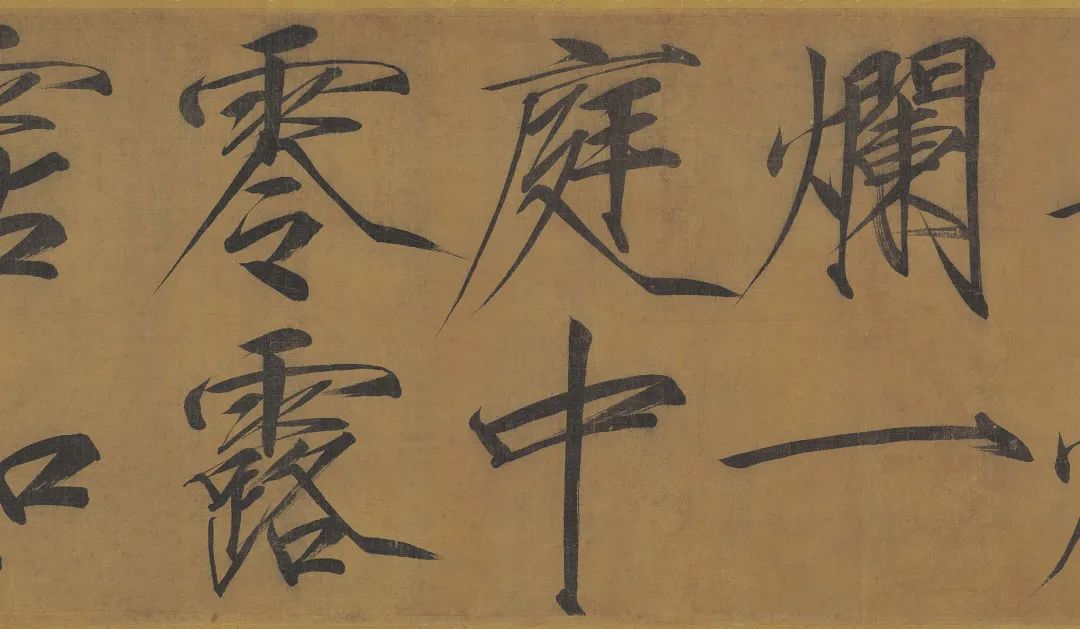 爛一
庭中
零露